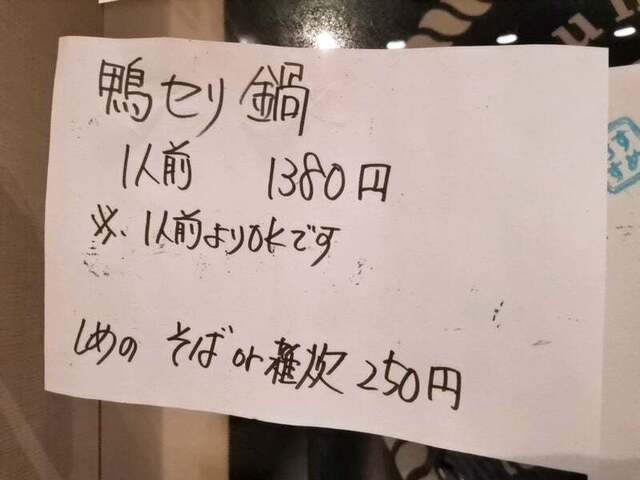 鴨セリ鍋
1人前 1380円
※ 1人前よりOKです
しめの そばor雑炊 250円